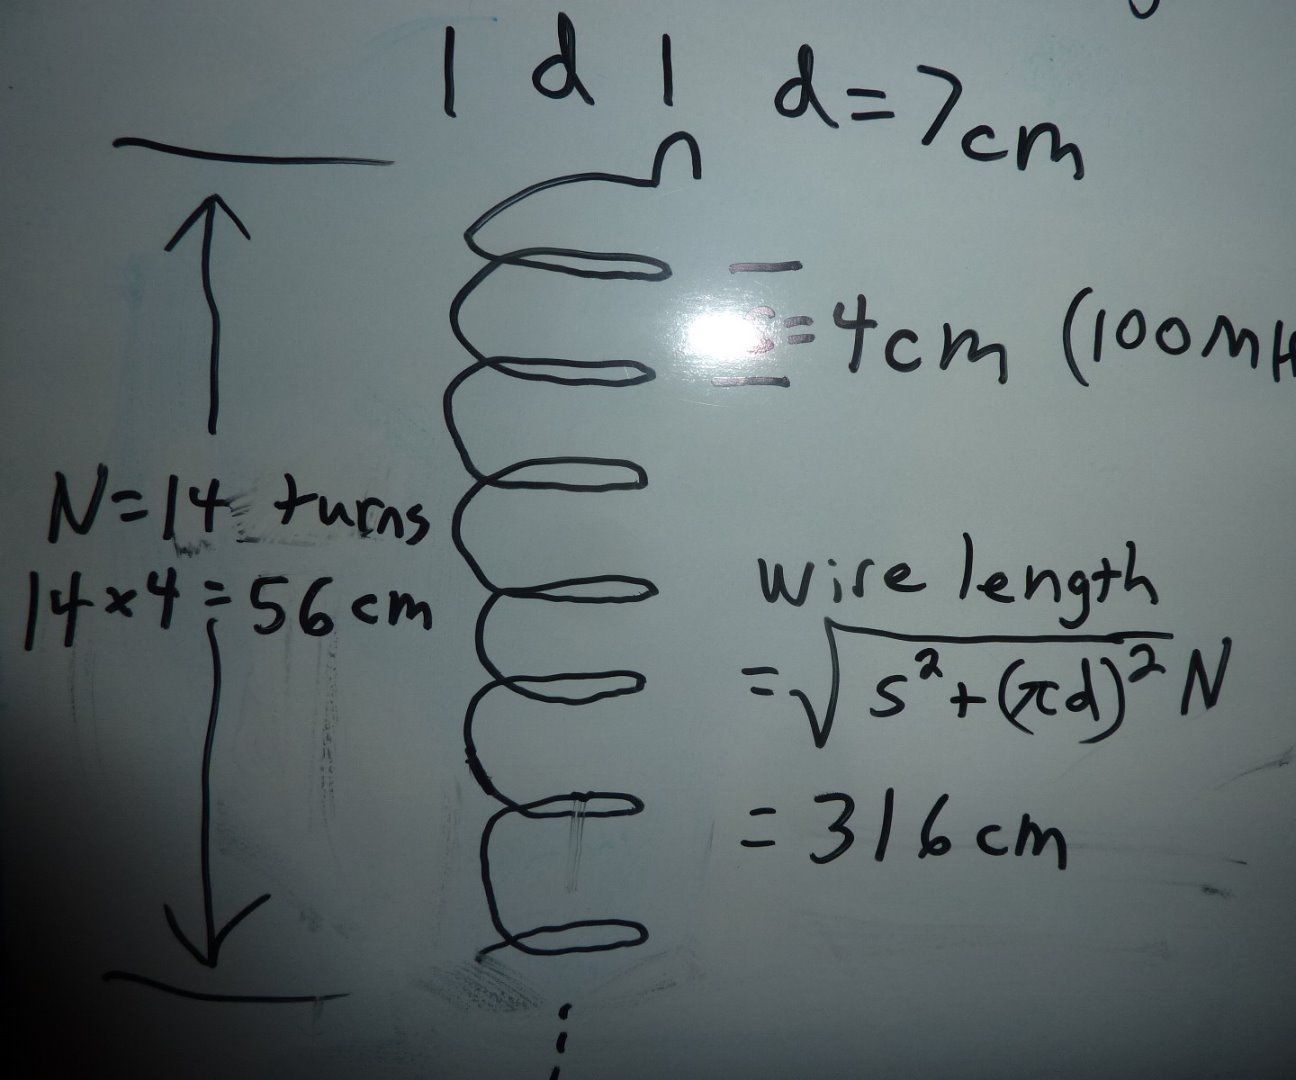 | d |
d = 7cm
s = 4cm (100MH
N = 14 turns
14 × 4 = 56 cm
wire length
= √(s² + (πd)²) N
= 316 cm